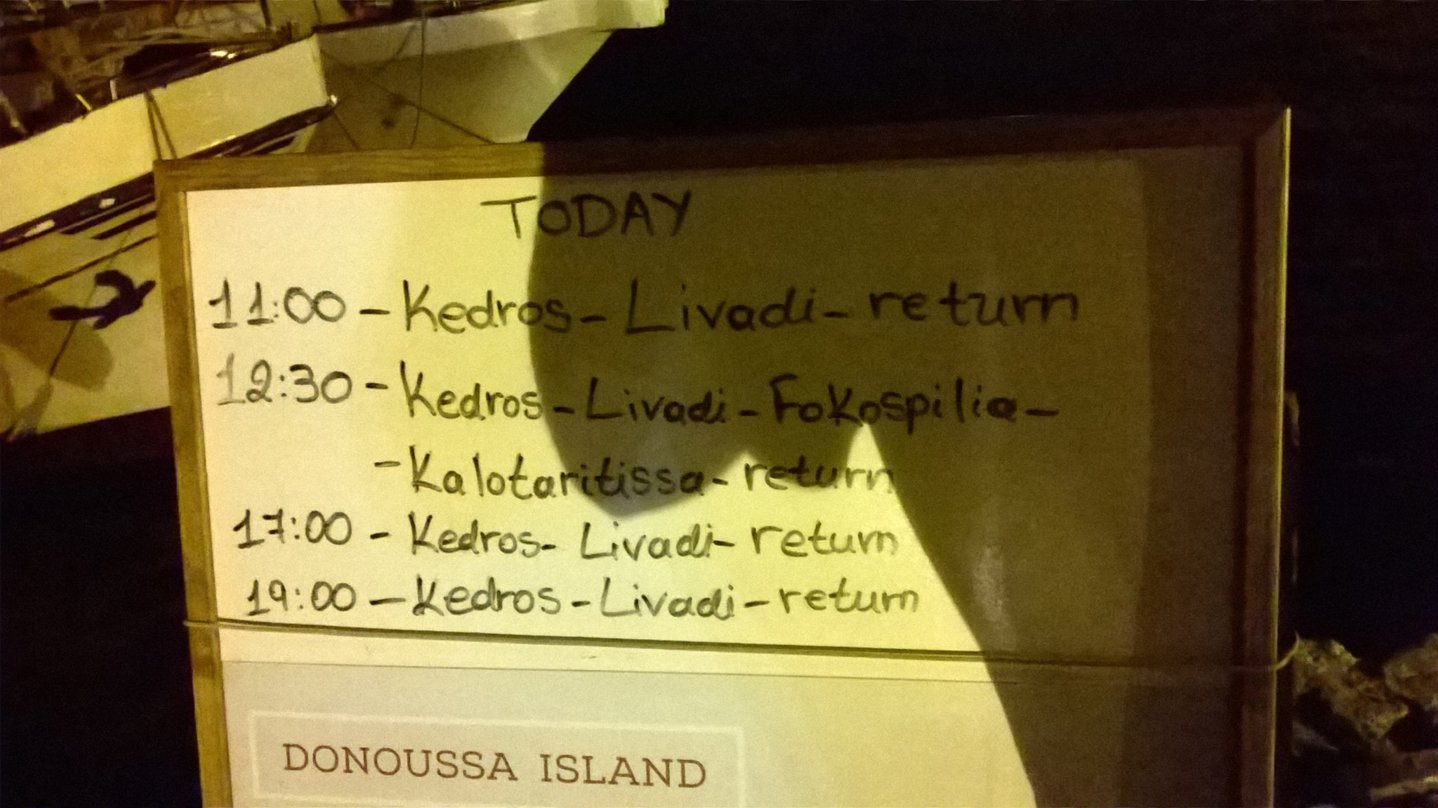 TODAY
11:00 - Kedros - Livadi - return
12:30 - Kedros - Livadi - Fokospilia -
- Kalotaritissa - return
17:00 - Kedros - Livadi - return
19:00 - Kedros - Livadi - return
DONOUSSA ISLAND